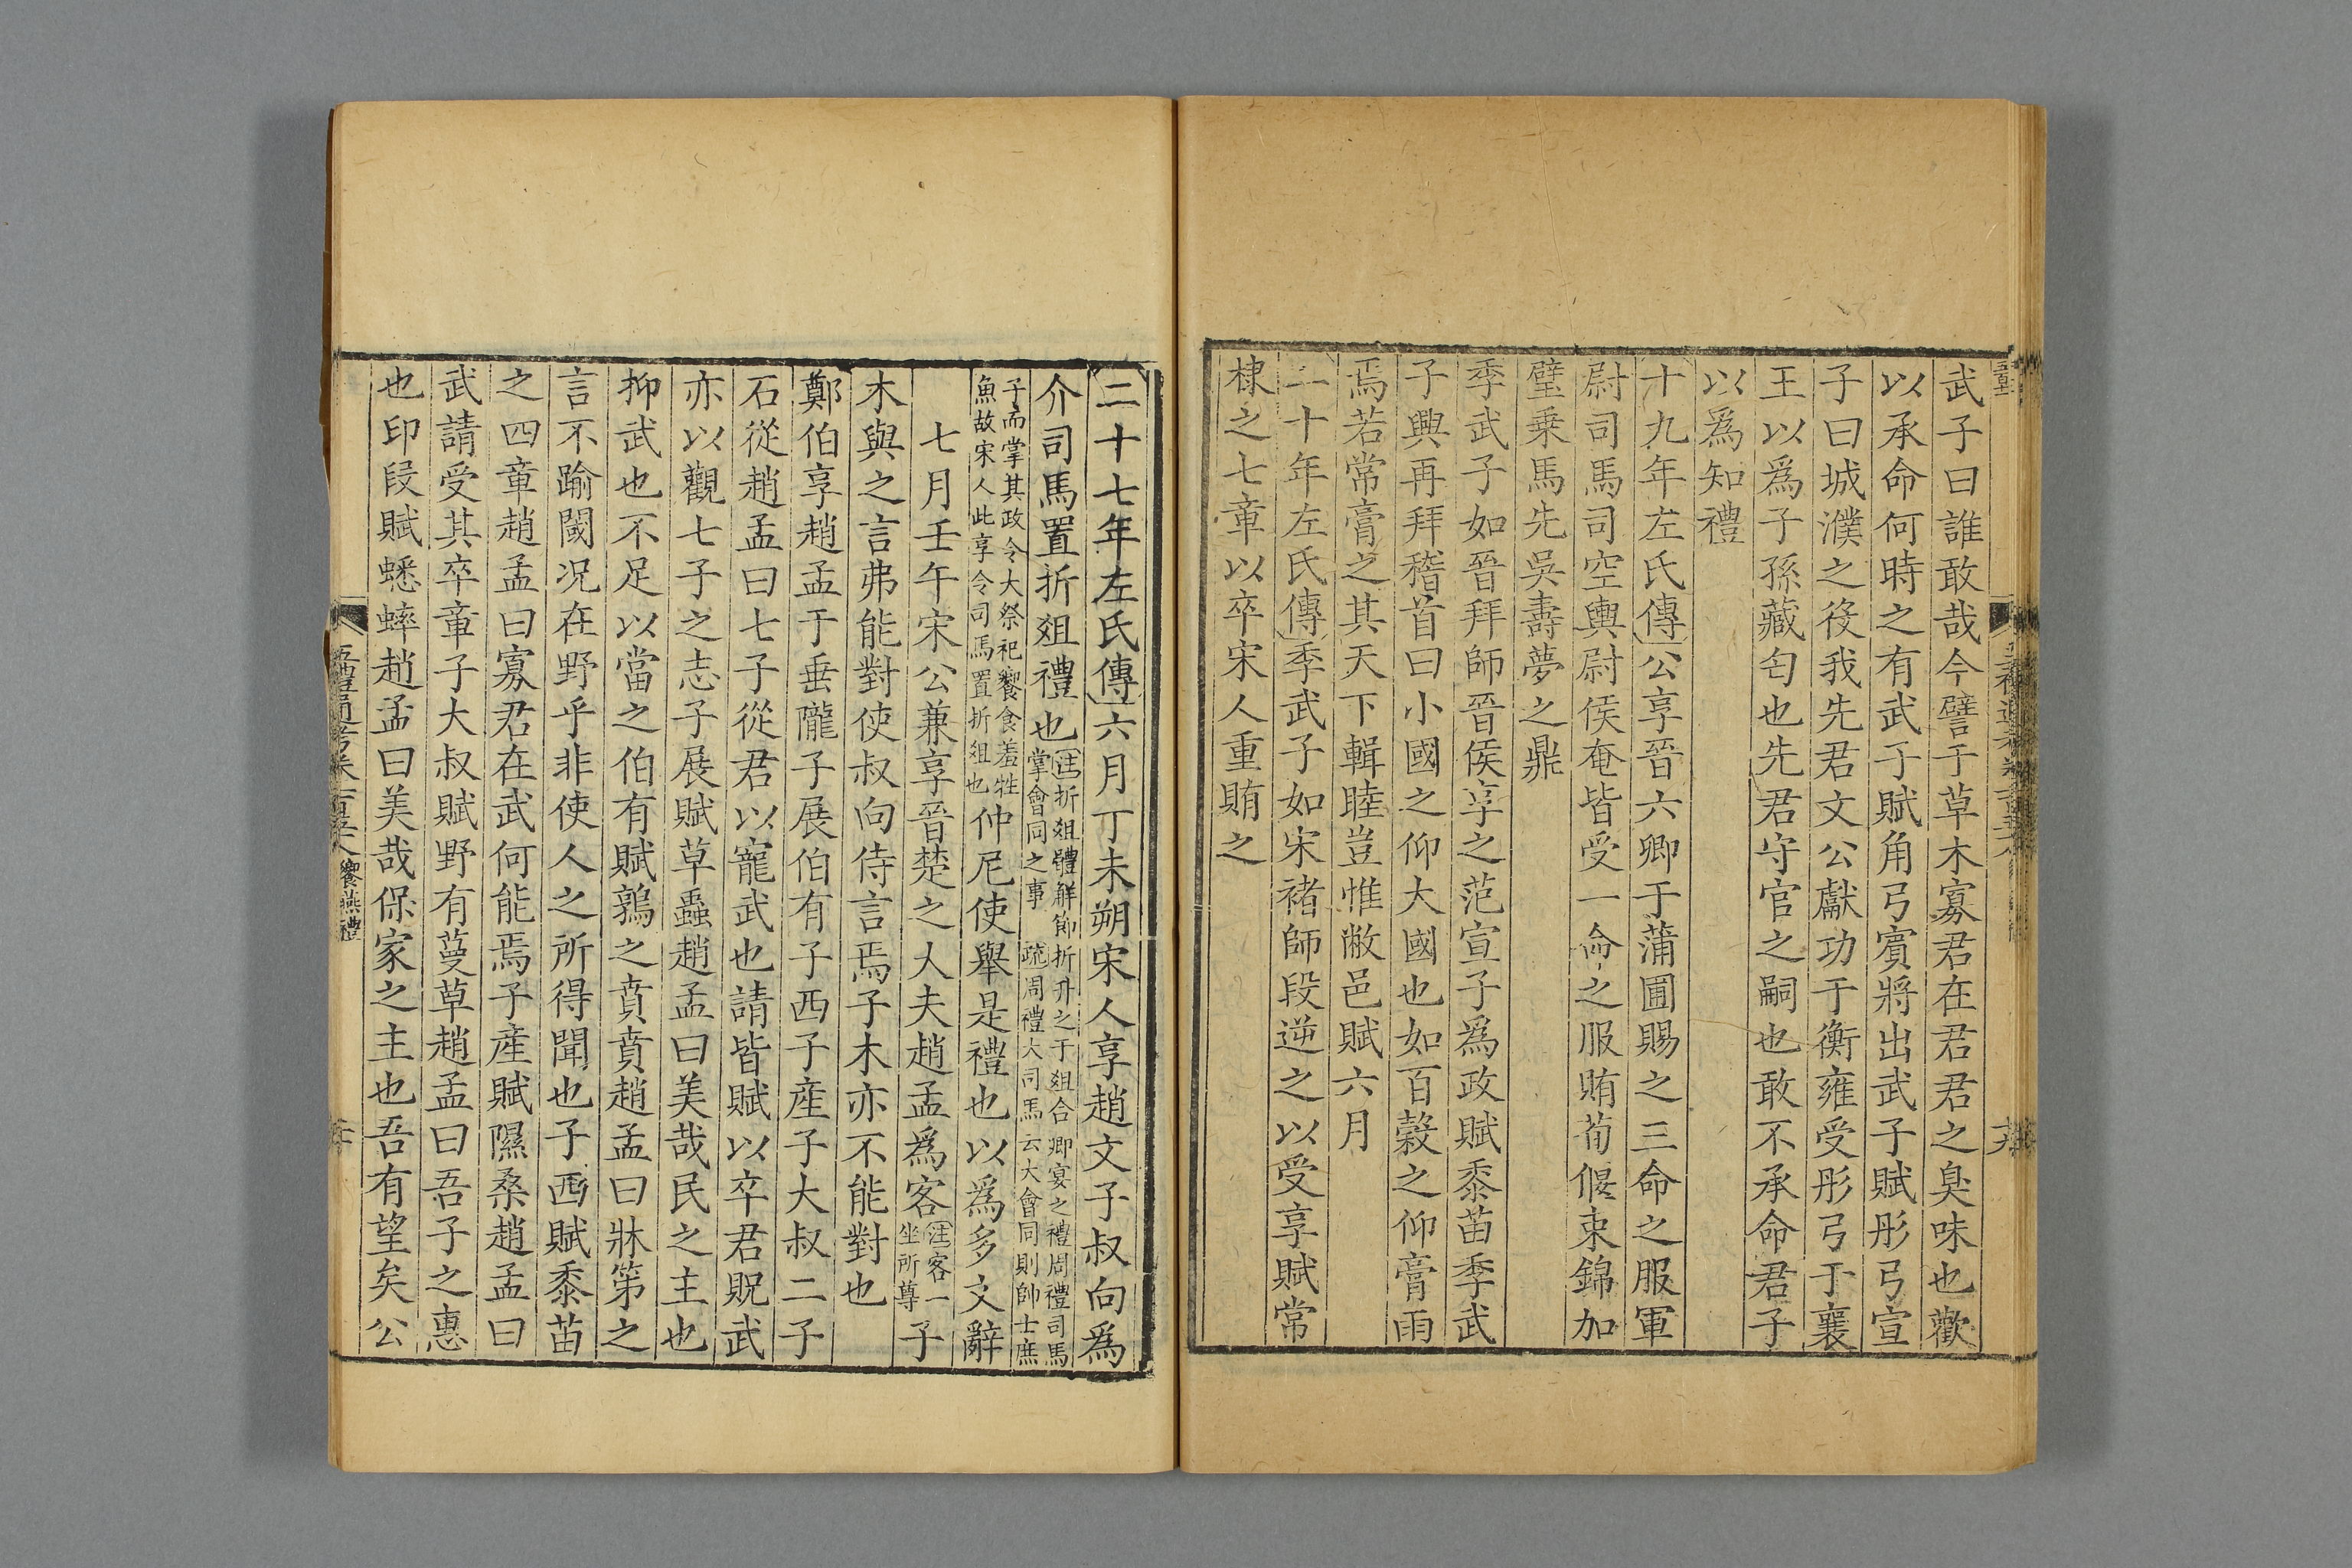 武子曰誰敢哉今譬于草木寡君在君君之臭味也歡
以承命何時之有武子賦角弓賓將出武子賦彤弓宣
子曰城濮之役我先君文公獻功于衡雍受彤弓于襄
王以爲子孫藏匄也先君守官之嗣也敢不承命君子
以爲知禮
十九年左氏傳公享晉六卿于蒲圃賜之三命之服軍
尉司馬司空輿尉侯奄皆受一命之服賄荀偃束錦加
璧乘馬先吳壽夢之鼎
季武子如晉拜師晉侯享之范宣子爲政賦黍苗季武
子興再拜稽首曰小國之仰大國也如百穀之仰膏雨
焉若常膏之其天下輯睦豈惟敝邑賦六月
二十年左氏傳季武子如宋褚師段逆之以受享賦常
棣之七章以卒宋人重賄之
二十七年左氏傳六月丁未朔宋人享趙文子叔向爲
介司馬置折俎禮也注折俎體解節折升之于俎合卿宴之禮周禮司馬
掌會同之事 疏周禮大司馬云大會同則帥士庶
子而掌其政令大祭祀饗食羞牲
魚故宋人此享令司馬置折俎也仲尼使舉是禮也以爲多文辭
七月壬午宋公兼享晉楚之大夫趙孟爲客注客一坐所尊子
木與之言弗能對使叔向侍言焉子木亦不能對也
鄭伯享趙孟于垂隴子展伯有子西子產子大叔二子
石從趙孟曰七子從君以寵武也請皆賦以卒君貺武
亦以觀七子之志子展賦草蟲趙孟曰美哉民之主也
抑武也不足以當之伯有賦鶉之賁賁趙孟曰牀第之
言不踰閾况在野乎非使人之所得聞也子西賦黍苗
之四章趙孟曰寡君在武何能焉子產賦隰桑趙孟曰
武請受其卒章子大叔賦野有蔓草趙孟曰吾子之惠
也印段賦蟋蟀趙孟曰美哉保家之主也吾有望矣公
五禮通考卷一百五十八 饗燕禮